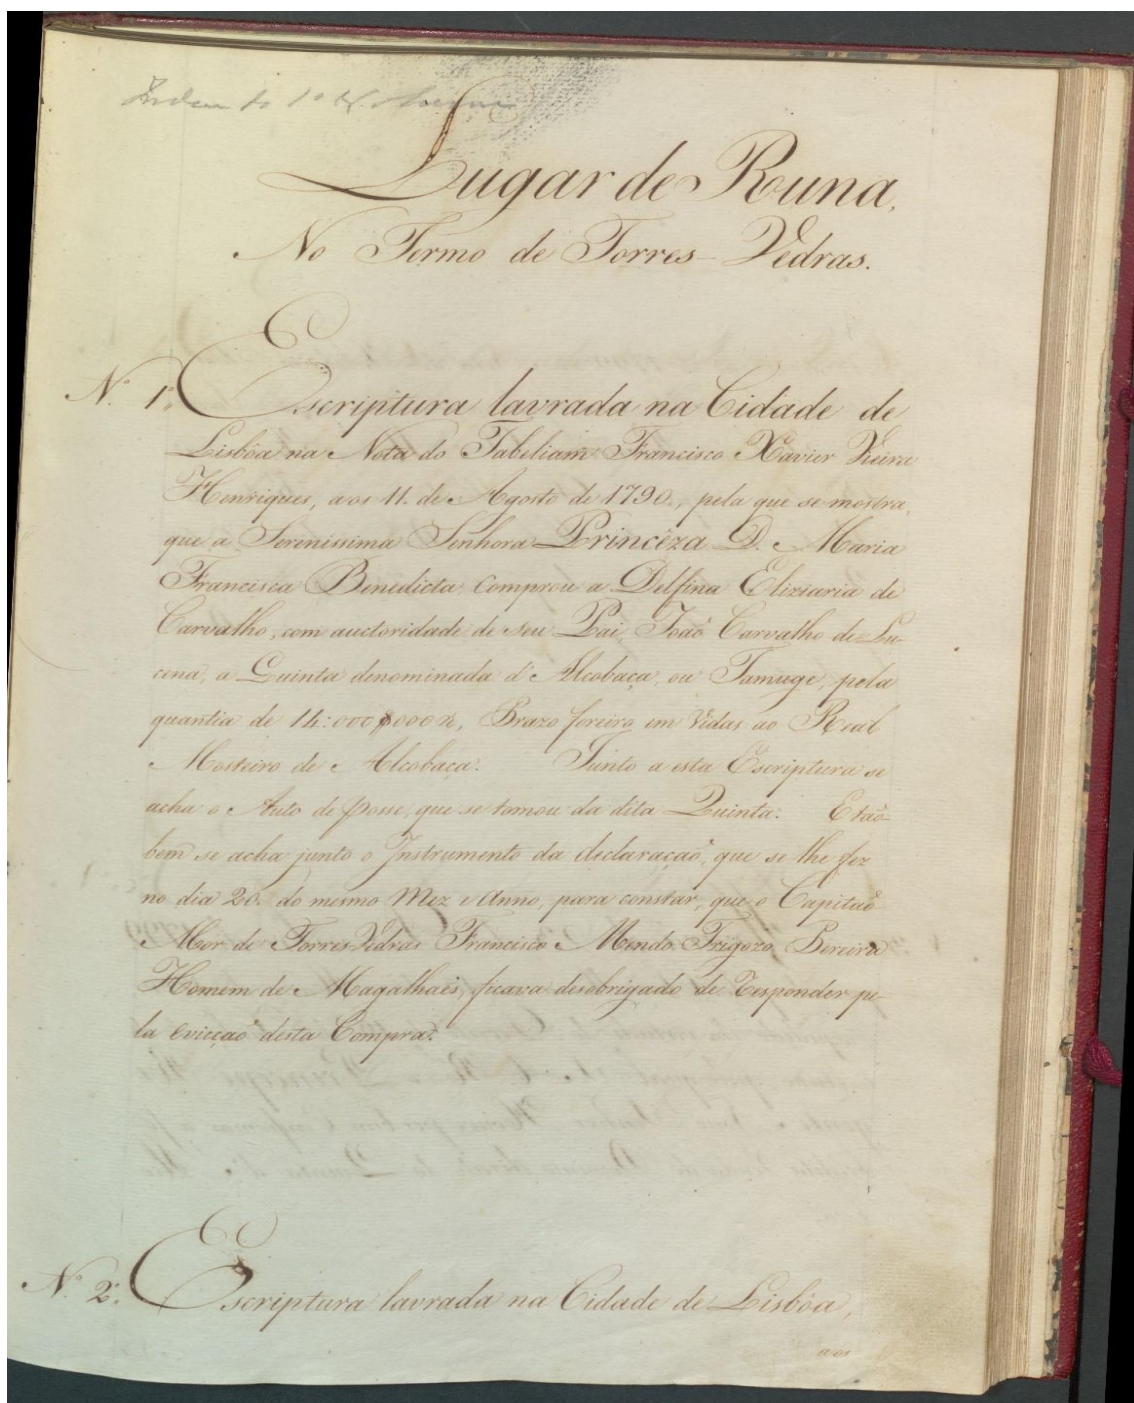 Lugar de Runa.
No Termo de Torres-Vedras.
N.º 1.º Escriptura lavrada na Cidade de
Lisbôa na Nota do Tabeliam Francisco Xavier Vieira
Henriques, aos 11. de Agosto de 1790., pela que se mostra,
que a Serenissima Senhora Princêza D. Maria
Francisca Benedicta comprou a Delfina Eliziaria de
Carvalho, com auctoridade de seu Pai, Joaõ Carvalho de Lu-
cena, a Quinta denominada d'Alcobaça, ou Tamuge, pela
quantia de 14:000$000 r., Prazo foreiro em Vidas ao Real
Mosteiro de Alcobaça. Junto a esta Escriptura se
acha o Auto de posse, que se tomou da dita Quinta. E taõ-
bem se acha junto o Instrumento da declaraçaõ, que se lhe fez
no dia 20. do mesmo Mez e Anno, para constar, que o Capitaõ
Mor de Torres Vedras Francisco Mendo Trigozo Pereira
Homem de Magalhaẽs, ficava desobrigado de responder pe-
la evicçaõ desta Compra.
N.º 2.º Escriptura lavrada na Cidade de Lisbôa,
aos